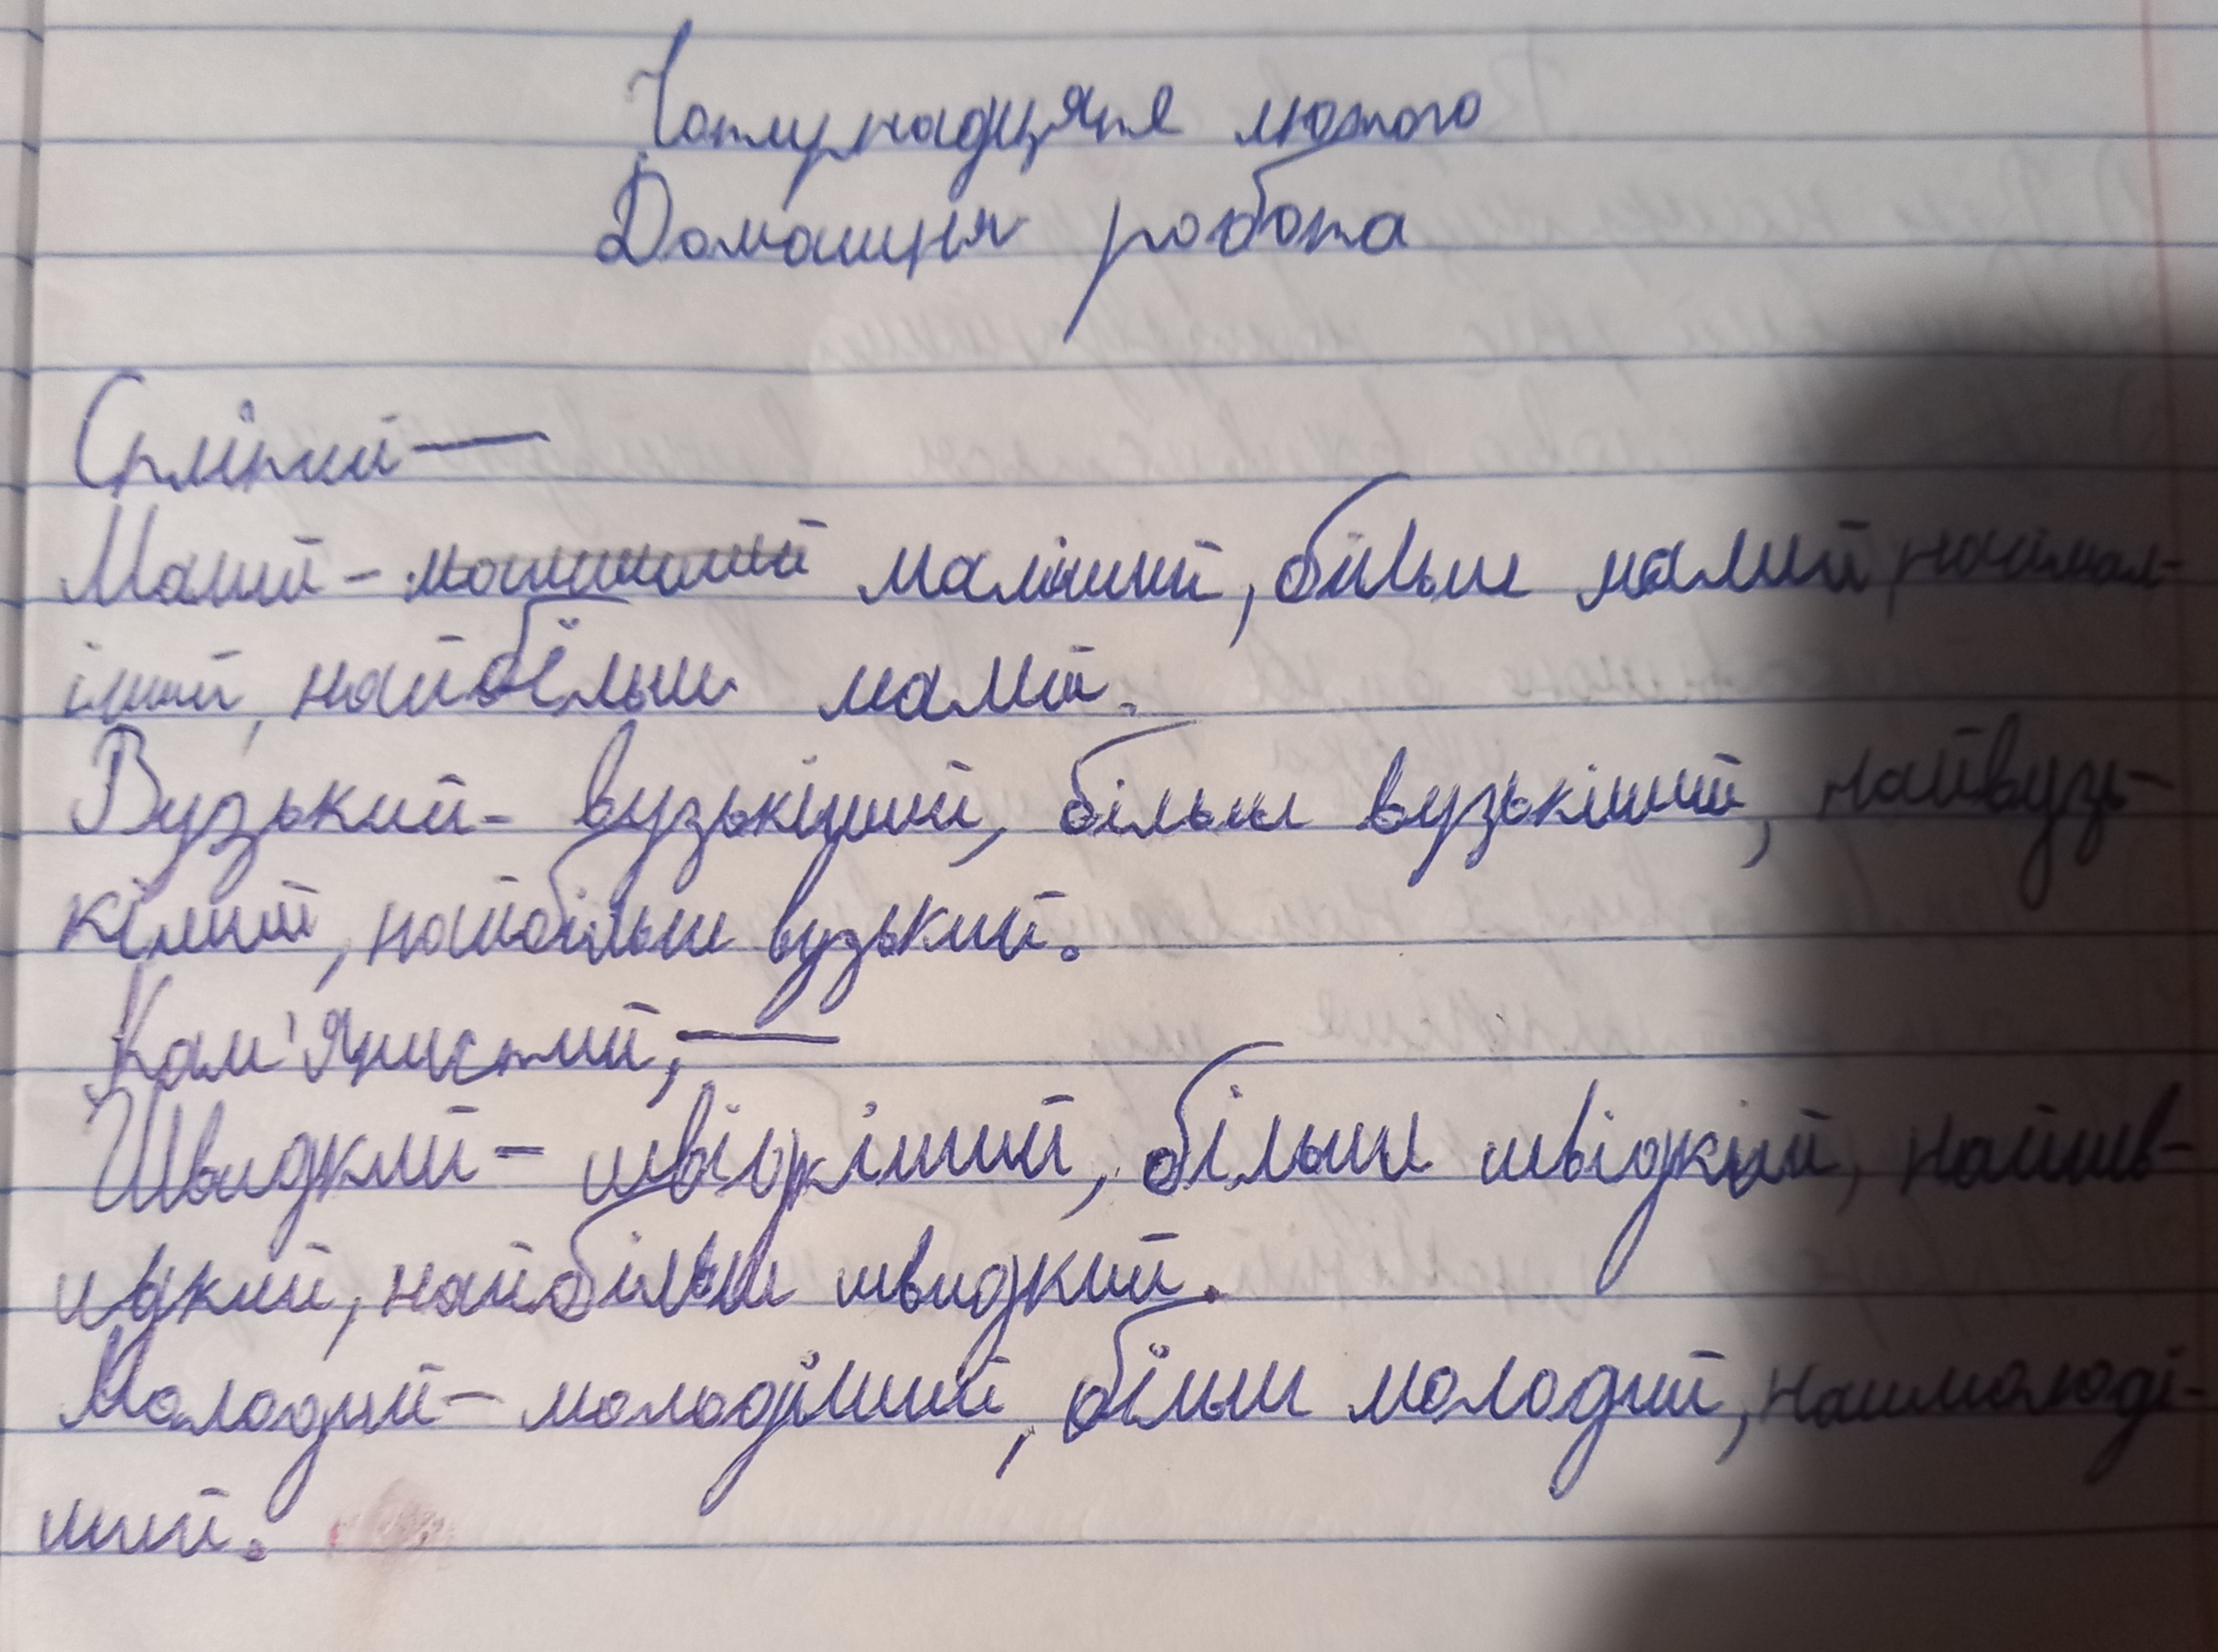 Чотирнадцяте лютого
Домашня робота
Сліпий —
Малий - маліший, більш малий, наймал-
іший, найбільш малий.
Вузький - вузькіший, більш вузькіший, найвузь-
кіший, найбільш вузький.
Кам'янистий, —
Швидкий - швідкіший, більш швідкий, найшв-
идкий, найбільш швидкий.
Молодий - молодіший, більш молодий, наймолоді-
ший.